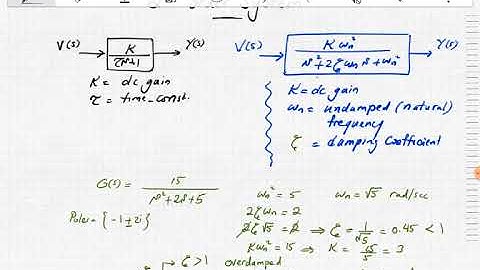 V(s) K/(τs+1) Y(s)
K = dc gain
τ = time-const.
V(s) Kωn²/(s²+2ζωn s+ωn²) Y(s)
K = dc gain
ωn = undamped (natural)
frequency
ζ = damping coefficient
G(s) = 15/(s²+2s+5)
Poles = {-1±2i}
ωn² = 5 ωn = √5 rad/sec
2ζωn = 2
2ζ√5 = 2 ⇒ ζ = 1/√5 = 0.45 < 1
Kωn² = 15 ⇒ K = 15/5 = 3
ζ>1 overdamped